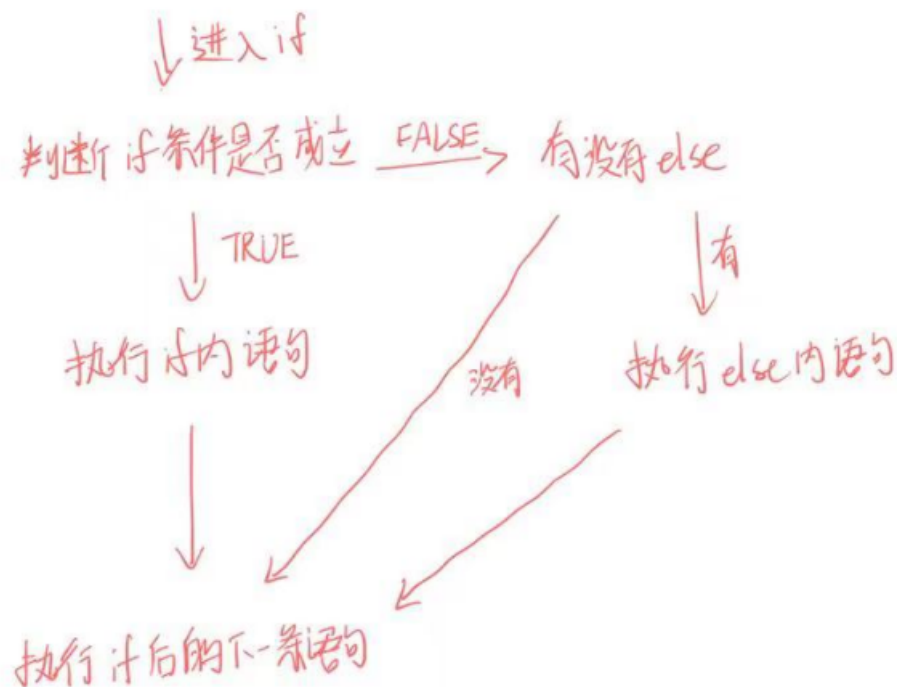 进入if
判断if条件是否成立 FALSE 有没有else
TRUE
有
执行if内语句
没有
执行else内语句
执行if后的下一条语句